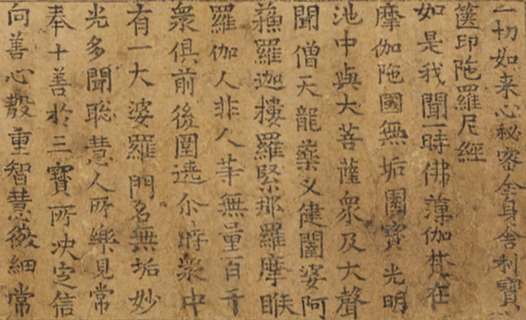 一切如来心秘密全身舍利寶
篋印陁羅尼經
如是我聞一時佛薄伽梵在
摩伽陁國無垢園寶光明
池中與大菩薩衆及大聲
聞僧天龍藥叉健闥婆阿
蘓羅迦樓羅緊那羅摩睺
羅伽人非人等無量百千
衆俱前後圍遶尒時衆中
有一大婆羅門名無垢妙
光多聞聰慧人所樂見常
奉十善於三寶所决定信
向善心殷重智慧微細常